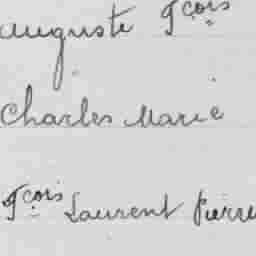 Auguste Fçois
Charles Marie
Fçois Laurent Pierre